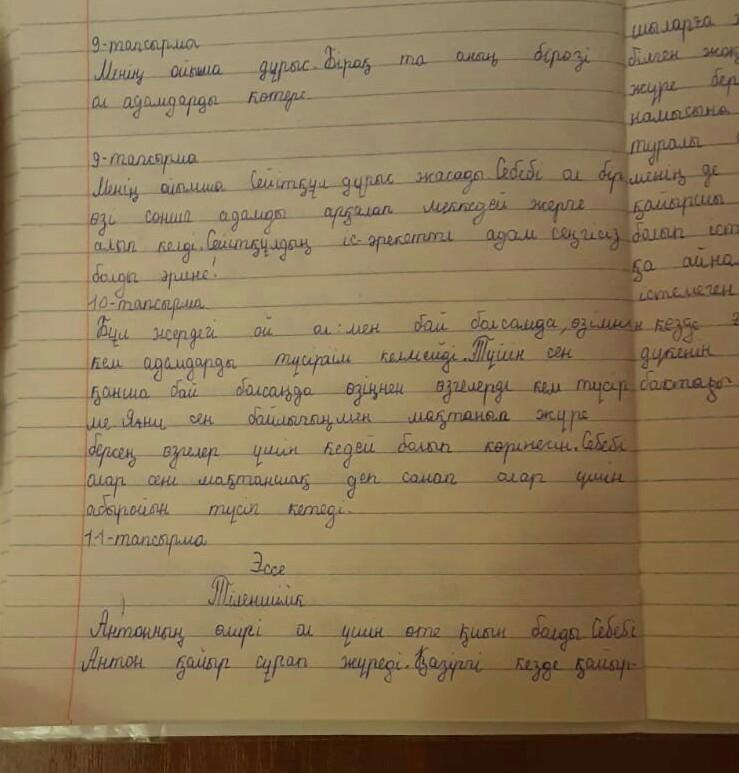 9-тапсырма
Менің ойымша дұрыс. Бірақ та оның бірөзі
ол адамдарды көтере.
9-тапсырма
Менің ойымша Сейітқұл дұрыс жасады Себебі ол бір
өзі сонша адамды арқалап меккедей жерге
алып келді. Сейтқұлдың іс-әрекетті адам сенгісіз
болды әрине!
10-тапсырма
Бұл жердегі ой ол: мен бай болсамда, өзімнен
кем адамдарды түсіргім келмейді. Түйін сен
қанша бай болсаңда өзіңнен өзгелерді кем түсір
ме Яғни сен байлығыңмен мақтанып жүре
берсең өзгелер үшін кедей болып көрінесің. Себебі
олар сені мақтаншақ деп санап олар үшін
абыройың түсіп кетеді.
11-тапсырма
Эссе
Тіленшілік
Антонның өмірі ол үшін өте қиын болды Себебі
Антон қайыр сұрап жүреді. Қазіргі кезде қайыр-
шыларға
білген
жүре бер
намысына
туралы
менің де
қайыршы
болып іст
қа айна
істемеген
кезде
дүкенін
бақтағы